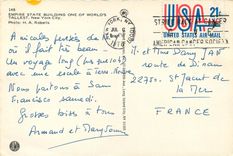 EMPIRE STATE BUILDING ONE OF WORLD'S
TALLEST, New York City
USA 21c
UNITED STATES AIR MAIL
AMERICAN CANCER SOCIETY
Amicales pensées de
où il fait très beau.
Un voyage long
avec une escale à Terre-Neuve
Nous partons à San
Francisco samedi.
Grosses bises à tous
Armand et
M. et Mme Dany JAN
route de Dinan
22750. St Jacut de
la Mer
FRANCE